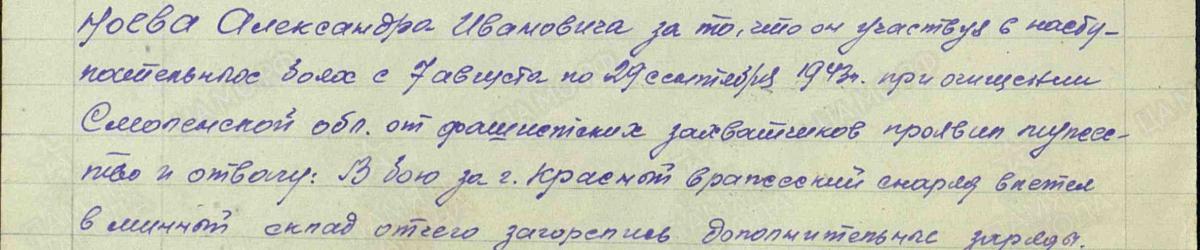 Ноева Александра Ивановича за то, что он участвуя в насту-
пательных боях с 7 августа по 29 сентября 1943г. при очищении
Смоленской обл. от фашистских захватчиков проявил мужес-
тво и отвагу: В бою за г. Красный вражеский снаряд влетел
в минный склад отчего загорелись дополнительные заряды.